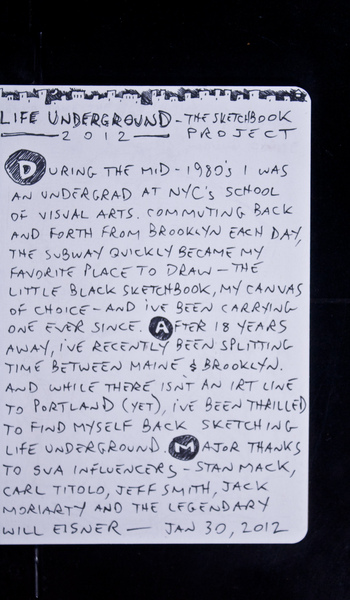 LIFE UNDERGROUND - THE SKETCHBOOK
2012 PROJECT
DURING THE MID-1980's I WAS
AN UNDERGRAD AT NYC's SCHOOL
OF VISUAL ARTS. COMMUTING BACK
AND FORTH FROM BROOKLYN EACH DAY,
THE SUBWAY QUICKLY BECAME MY
FAVORITE PLACE TO DRAW - THE
LITTLE BLACK SKETCHBOOK, MY CANVAS
OF CHOICE - AND I'VE BEEN CARRYING
ONE EVER SINCE. AFTER 18 YEARS
AWAY, I'VE RECENTLY BEEN SPLITTING
TIME BETWEEN MAINE & BROOKLYN.
AND WHILE THERE ISN'T AN IRT LINE
TO PORTLAND (YET), I'VE BEEN THRILLED
TO FIND MYSELF BACK SKETCHING
LIFE UNDERGROUND. MAJOR THANKS
TO SVA INFLUENCERS - STAN MACK,
CARL TITOLO, JEFF SMITH, JACK
MORIARTY AND THE LEGENDARY
WILL EISNER — JAN 30, 2012